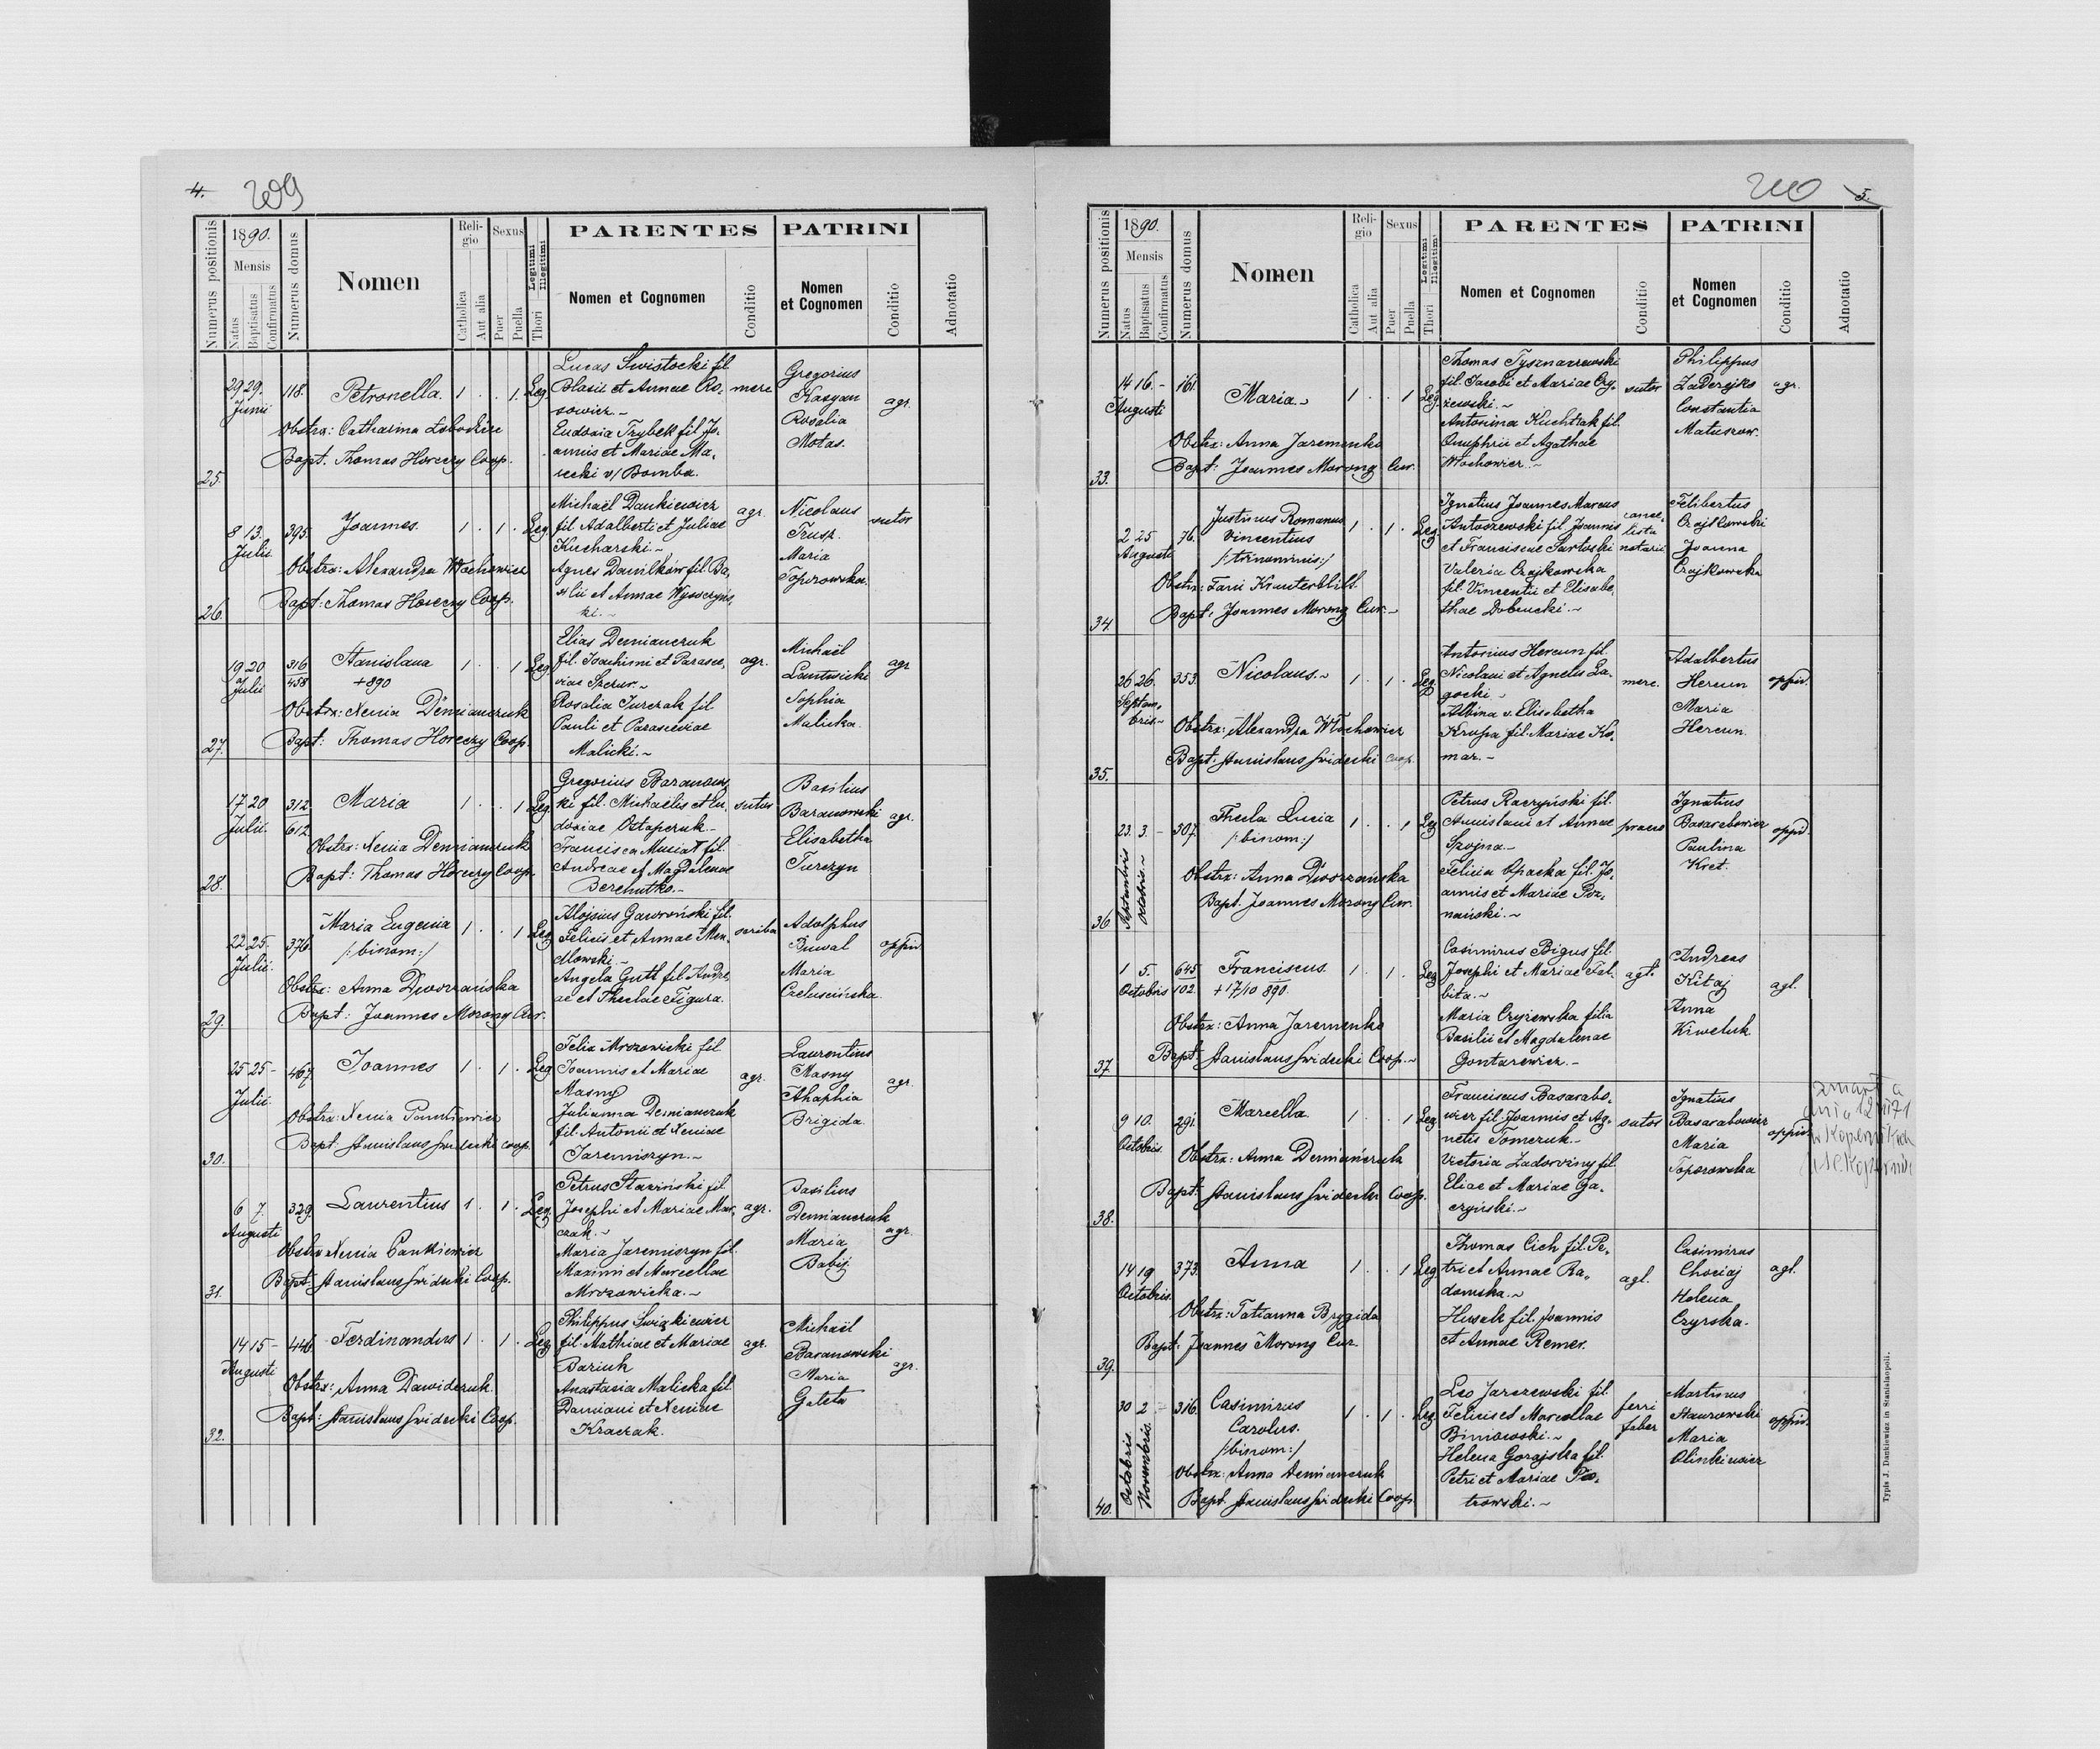 4. 209
Numerus positionis
1890.
Mensis
Natus
Baptisatus
Confirmatus
Numerus domus
Nomen
Religio
Catholica
Aut alia
Sexus
Puer
Puella
Thori
Legitimi
Illegitimi
PARENTES
Nomen et Cognomen
Conditio
PATRINI
Nomen
et Cognomen
Conditio
Adnotatio
25.
29 29.
Junii
118.
Petronella. 1 . . 1. Leg.
Obstrx: Catharina
Bapt. Thomas Horeczy Coop.
Lucas Swistocki fil
Blasii et Annae Ro-
sowicz.~
Eudoxia Trybek fil Jo-
annis et Mariae Ma-
recki v/ Bomba.
merc
Gregorius
Kasyan
Rosalia
Motas.
agr.
26.
8 13.
Julii
395.
Joannes. 1 . 1 . Leg.
Obstrx: Alexandra Wachowicz
Bapt: Thomas Horeczy Coop.
Michaël Dankiewicz
fil Adalberti et Juliae
Kucharski.~
Agnes Danilków fil. Ba-
silii et Annae Wysoczyńs-
ki.~
agr.
Nicolaus
Trusz.
Maria
Toporowska.
sutor
27.
19 20
Julii
316
458
Stanislava 1 . . 1 Leg.
+890
Obstrx: Xenia Demianczuk
Bapt: Thomas Horeczy Coop.
Elias Demianczuk
fil. Joachimi et Parasce-
viae Szczur.~
Rosalia Jurczak fil
Pauli et Parasceviae
Malicki.~
agr.
Michaël
Lautwicki
Sophia
Malicka.
agr
28.
17 20
Julii.
312.
612.
Maria 1 . . 1 Leg.
Obstrx: Xenia Demianczuk
Bapt: Thomas Horeczy Coop.
Gregorius Baranows-
ki fil. Michaelis et Eu-
doxiae Ostapczuk.-
Francisca Musiał fil.
Andreae et Magdalenae
Berehutko.-
sutor
Basilius
Baranowski
Elisabetha
Turczyn
agr.
29.
22 25.
Julii.
376.
Maria Eugenia 1 . . 1 Leg
/:binom:/
Obstrx: Anna Dworzańska
Bapt: Joannes Morong Cur.
Aloisius Gaworoński fil.
Felicis et Annae Men-
dlowski.-
Angela Gutt fil Andre-
ae et Theclae Figura.
scriba
Adolphus
Buwal
Maria
Czeluscińska.
oppid
30.
25 25 -
Julii.
467.
Joannes 1 . 1 . Leg
Obstrx: Xenia Pankiewicz
Bapt: Stanislaus Swiderski coop.
Felix Mrozowicki fil
Joannis et Mariae
Masny
Julianna Demianczuk
fil. Antonii et Xeniae
Jaremiszyn.~
agr.
Laurentius
Masny
Ahaphia
Brigida.
agr.
31.
6 7.
Augusti
329.
Laurentius 1 . 1 . Leg.
Obstrx Xenia Pankiewicz
Bapt: Stanislaus Swiderski Coop.
Petrus Staziński fil
Josephi et Mariae Mar-
czak.~
Maria Jaremiszyn fil.
Maximi et Marcellae
Mrozowicka.~
agr.
Basilius
Demianczuk
Maria
Babij.
agr.
32.
14 15 -
Augusti
446.
Ferdinandus 1 . 1 . Leg
Obstrx: Anna Dawidczuk.
Bapt: Stanislaus Swiderski Coop.
Philippus Swiątkiewicz
fil. Mathiae et Mariae
Bariuk
Anastasia Malicka fil
Damiani et Xeniae
Kraczak.
agr.
Michaël
Baranowski
Maria
Galeta
agr.
210 5.
Numerus positionis
1890.
Mensis
Natus
Baptisatus
Confirmatus
Numerus domus
Nomen
Religio
Catholica
Aut alia
Sexus
Puer
Puella
Thori
Legitimi
Illegitimi
PARENTES
Nomen et Cognomen
Conditio
PATRINI
Nomen
et Cognomen
Conditio
Adnotatio
33.
14 16. -
Augusti
161.
Maria.~ 1 . . 1 Leg.
Obstrx: Anna Jaremenko
Bapt: Joannes Morong Cur.
Thomas Tysznarzewski
fil. Jacobi et Mariae Czy-
żewski.~
Antonina Kuchtak fil.
Onuphrii et Agathae
Wachowicz.~
sutor
Philippus
Zaderejko
Constantia
Matuszow.
agr.
34
2 25
Augusti
76.
Justinus Romanus 1 . 1 . Leg.
Vincentius
/:trinominis:/
Obstrx: Fani
Bapt: Joannes Morong Cur.~
Ignatius Joannes Marcus
Antoszewski fil. Joannis
et Franciscae Sartoski
Valeria Czajkowska
fil. Vincentii et Elisabe-
thae Dobrucki.~
cance-
lista
notarii
Felibertus
Czajkowski
Joanna
Czajkowska
35.
26 26.
Septem-
bris.~
353.
Nicolaus.~ 1 . 1 . Leg
Obstrx: Alexandra Wachowicz
Bapt: Stanislaus Swiderski coop.
Antonius Hercun fil.
Nicolai et Agnetis Za-
gocki.~
Albina v. Elisabetha
Krupa fil. Mariae Ko-
mar.-
merc.
Adalbertus
Hercun
Maria
Hercun.
oppid.
36.
23. 3. -
Septembris
Octobris.~
307.
Thecla Lucia 1 . . 1 Leg
/:binom:/
Obstrx: Anna Dworzańska
Bapt. Joannes Morong Cur.
Petrus Raczyński fil.
Stanislai et Annae
Szojna.-
Felicia Opacka fil. Jo-
annis et Mariae Poz-
nański.~
praeco
Ignatius
Basarabowicz
Paulina
Kret.
oppid.
37.
1 5.
Octobris
645
102.
Franciscus 1 . 1 . Leg
+17/10 890.
Obstrx: Anna Jaremenko
Bapt: Stanislaus Swiderski Coop.~
Casimirus Bigus fil.
Josephi et Mariae Fal-
bita.~
Maria Czyżewska filia
Basilii et Magdalenae
Gontarewicz.-
agl.
Andreas
Kitaj
Anna
Kiweluk
agl.
38.
9 10.
Octobris.
291.
Marcella 1 . . 1 Leg
Obstrx: Anna Demianczuk
Bapt: Stanislaus Swiderski Coop.
Franciscus Basarabo-
wicz fil. Joannis et Ag-
netis Tomczuk.-
Victoria Zadorożny fil.
Eliae et Mariae Ga-
czyński.~
sutor
Ignatius
Basarabowicz
Maria
Toporowska
oppid.
zmarła
39.
14 19
Octobris.
373.
Anna 1 . . 1 Leg.
Obstrx: Tatianna Brygida
Bapt: Joannes Morong Cur.
Thomas Cich fil. Pe-
tri et Annae Ra-
domska.~
Husak fil. Joannis
et Annae Remer.
agl.
Casimirus
Chociaj
Helena
Czyrska.
agl.
40.
30 2 -
Octobris.
Novembris.
316.
Casimirus 1 . 1 . Leg.
Carolus.
/:binom:/
Obstrx: Anna Demianczuk
Bapt. Stanislaus Swiderski Coop.
Leo Jarczewski fil.
Felicis et Marcellae
Biniowski.~
Helena Gorajska fil.
Petri et Mariae Pio-
trowski.~
ferri
faber
Martinus
Staurowski
Maria
Olinkiewicz
oppid.
Typis J. Dankiewicz in Stanislaopoli.